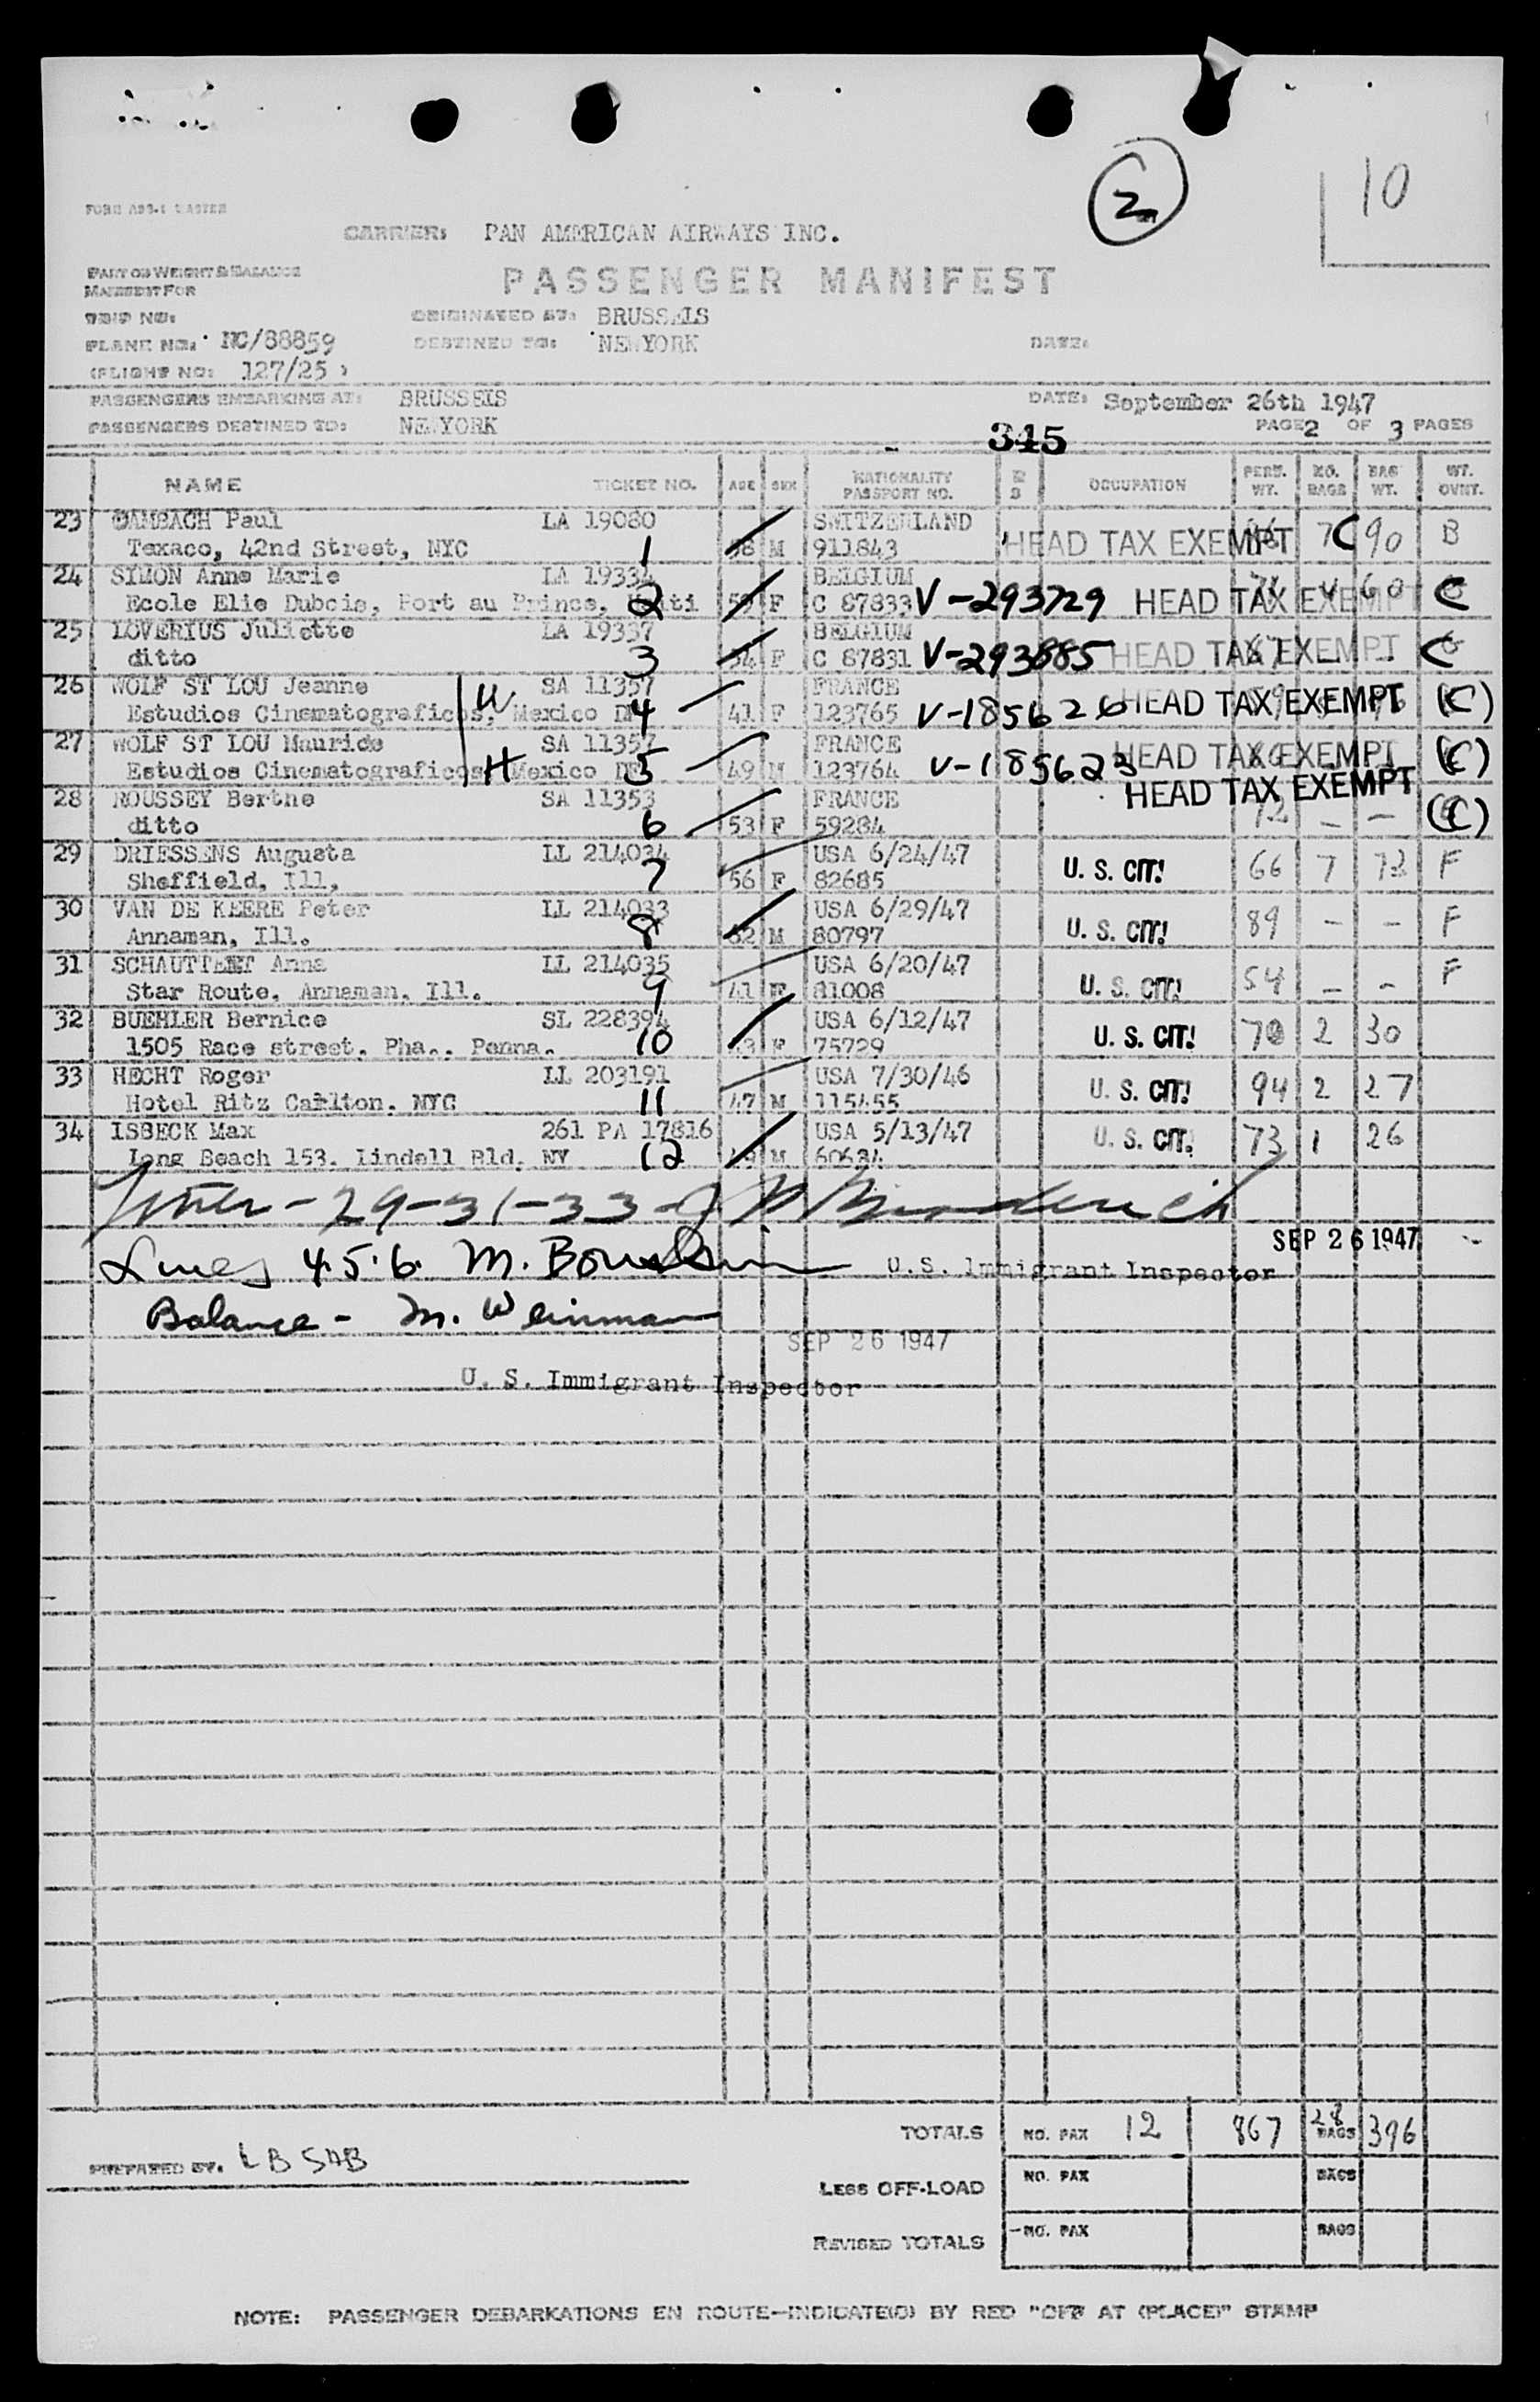 2
10
CARRIER: PAN AMERICAN AIRWAYS INC.
PART OF WEIGHT & BALANCE
MANIFEST FOR
PASSENGER MANIFEST
TRIP NO: ORIGINATED AT: BRUSSELS
PLANE NO: NC/88859 DESTINED TO: NEW YORK DATE:
(FLIGHT NO: 127/25)
PASSENGERS EMBARKING AT: BRUSSELS DATE: September 26th 1947
PASSENGERS DESTINED TO: NEW YORK PAGE 2 OF 3 PAGES
345
NAME TICKET NO. AGE SEX NATIONALITY PASSPORT NO. OCCUPATION PERS. WT. NO. BAGS BAG WT. WT. OVNT.
23 Paul LA 19080 SWITZERLAND
Texaco, 42nd Street, NYC 1 M 911843 HEAD TAX EXEMPT 7 90 B
24 SIMON Anne Marie LA 19334 BELGIUM
Ecole Elie Dubois, Port au Prince, Haiti 2 59 F C 87833 V-293729 HEAD TAX EXEMPT 4 60 C
25 LOVERIUS Juliette LA 19337 BELGIUM
ditto 3 54 F C 87831 V-293885 HEAD TAX EXEMPT C
26 WOLF ST LOU Jeanne W SA 11357 FRANCE
Estudios Cinematograficos, Mexico DF 4 41 F 123765 V-185626 HEAD TAX EXEMPT (C)
27 WOLF ST LOU Maurice SA 11357 FRANCE
Estudios Cinematograficos H Mexico DF 5 49 M 123764 V-185623 HEAD TAX EXEMPT (C)
28 ROUSSEY Berthe SA 11353 FRANCE HEAD TAX EXEMPT
ditto 6 53 F 59284 72 - - (C)
29 DRIESSENS Augusta LL 214034 USA 6/24/47
Sheffield, Ill, 7 56 F 82685 U. S. CIT! 66 7 73 F
30 VAN DE KEERE Peter LL 214033 USA 6/29/47
Annaman, Ill. 8 62 M 80797 U. S. CIT! 89 - - F
31 SCHAUTTEET Anna LL 214035 USA 6/20/47
Star Route, Annaman, Ill. 9 41 F 81008 U. S. CIT! 54 - - F
32 BUEHLER Bernice SL 228394 USA 6/12/47
1505 Race street, Pha., Penna. 10 F 75729 U. S. CIT! 70 2 30
33 HECHT Roger LL 203191 USA 7/30/46
Hotel Ritz Carlton, NYC 11 47 M 115455 U. S. CIT! 94 2 27
34 ISBECK Max 261 PA 17816 USA 5/13/47
Long Beach 153, Lindell Bld, NY 12 M 60634 U. S. CIT. 73 1 26
- 29-31-33 -
SEP 26 1947
Lines 4.5.6. M.
U.S. Immigrant Inspector
Balance - M. Weinman
SEP 26 1947
U. S. Immigrant Inspector
TOTALS NO. PAX 12 867 28 BAGS 396
PREPARED BY.
LESS OFF-LOAD NO. PAX BAGS
REVISED TOTALS NO. PAX BAGS
NOTE: PASSENGER DEBARKATIONS EN ROUTE—INDICATE(D) BY RED "OFF AT (PLACE)" STAMP